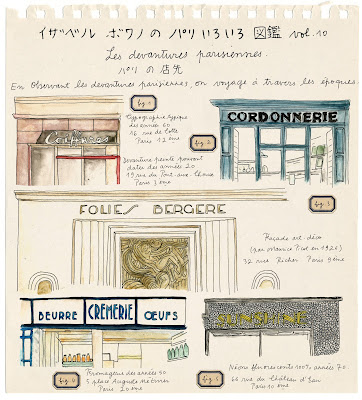 イザベル ボワノの パリいろいろ 図鑑 vol.10
Les devantures parisiennes.
パリ の 店先
En observant les devantures parisiennes, on voyage à travers les époques
fig 1
Typographie typique
des années 60
16 rue de Cotte
Paris 12ème
Coiffures
fig 2
CORDONNERIE
Devanture peinte pouvant
dater des années 20
Paris 3ème
fig 3
FOLIES BERGERE
Façade art-déco
(par Maurice Picot en 1926)
32 rue Richer Paris 9ème
BEURRE CRÈMERIE OEUFS
SUNSHINE
fig 4
Fromagerie des années 50
3 place Auguste Métivier
Paris 20ème
fig 5
Néons fluorescents 100% années 70
66 rue du Château d'Eau
Paris 10ème